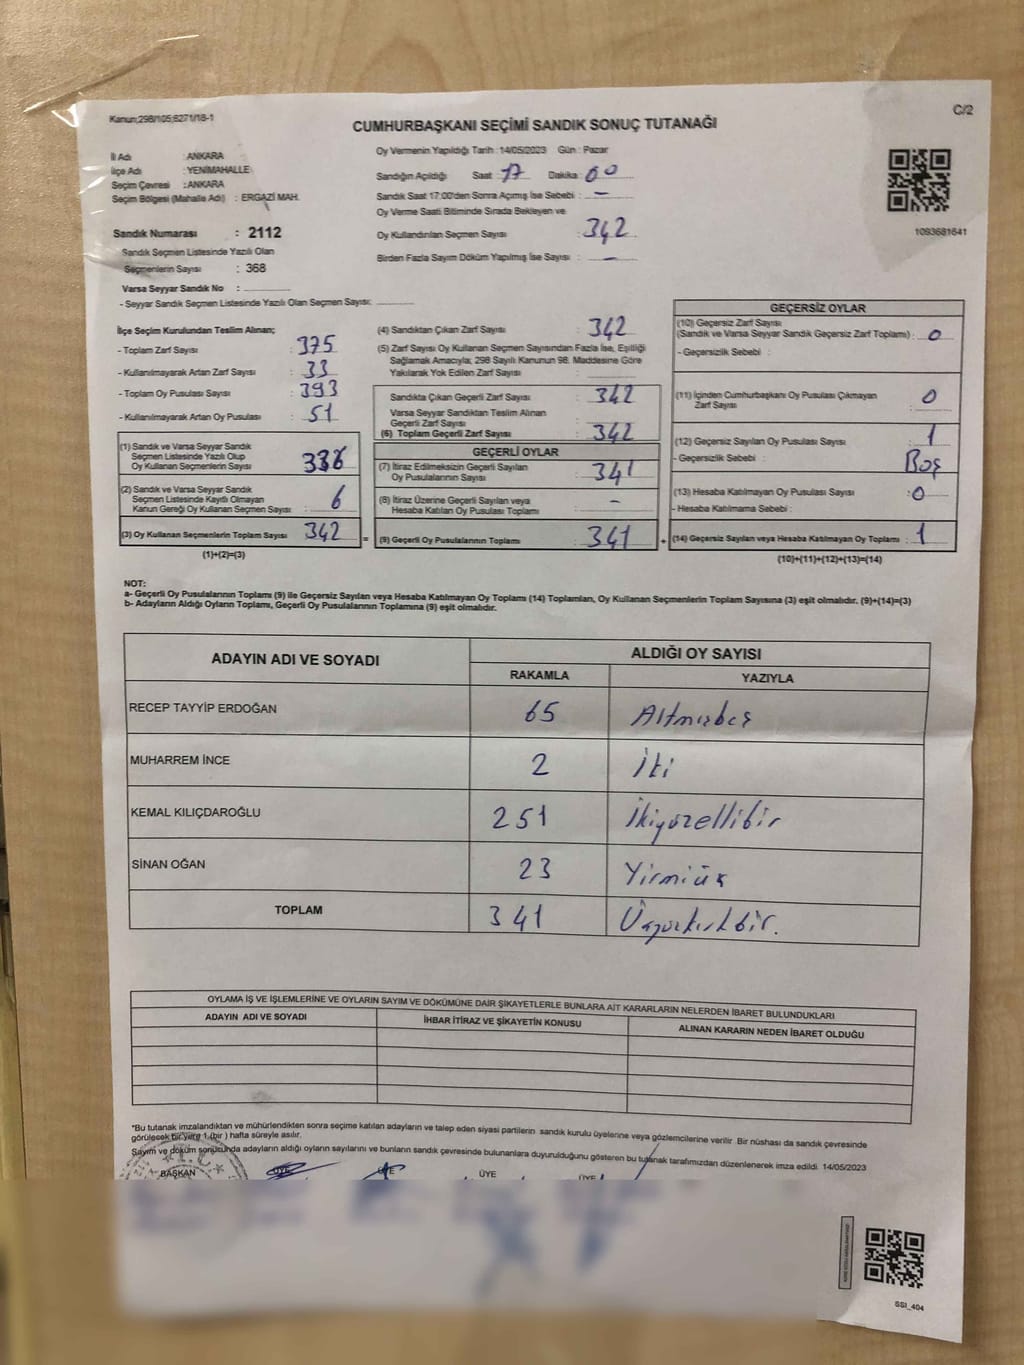 Kanun;298/105;6271/18-1
C/2
CUMHURBAŞKANI SEÇİMİ SANDIK SONUÇ TUTANAĞI
İl Adı : ANKARA
İlçe Adı : YENİMAHALLE
Seçim Çevresi : ANKARA
Seçim Bölgesi (Mahalle Adı) : ERGAZİ MAH.
Sandık Numarası : 2112
Sandık Seçmen Listesinde Yazılı Olan
Seçmenlerin Sayısı : 368
Varsa Seyyar Sandık No :
- Seyyar Sandık Seçmen Listesinde Yazılı Olan Seçmen Sayısı:
Oy Vermenin Yapıldığı Tarih : 14/05/2023 Gün : Pazar
Sandığın Açıldığı Saat : 17 Dakika : 00
Sandık Saat 17:00'den Sonra Açılmış İse Sebebi : -
Oy Verme Saati Bitiminde Sırada Bekleyen ve
Oy Kullandırılan Seçmen Sayısı : 342
Birden Fazla Sayım Döküm Yapılmış İse Sayısı : -
1093681641
İlçe Seçim Kurulundan Teslim Alınan;
- Toplam Zarf Sayısı : 375
- Kullanılmayarak Artan Zarf Sayısı : 33
- Toplam Oy Pusulası Sayısı : 393
- Kullanılmayarak Artan Oy Pusulası : 51
(1) Sandık ve Varsa Seyyar Sandık
Seçmen Listesinde Yazılı Olup
Oy Kullanan Seçmenlerin Sayısı 336
(2) Sandık ve Varsa Seyyar Sandık
Seçmen Listesinde Kayıtlı Olmayan
Kanun Gereği Oy Kullanan Seçmen Sayısı : 6
(3) Oy Kullanan Seçmenlerin Toplam Sayısı : 342 =
(1)+(2)=(3)
(4) Sandıktan Çıkan Zarf Sayısı : 342
(5) Zarf Sayısı Oy Kullanan Seçmen Sayısından Fazla İse, Eşitliği
Sağlamak Amacıyla; 298 Sayılı Kanunun 98. Maddesine Göre
Yakılarak Yok Edilen Zarf Sayısı :
Sandıkta Çıkan Geçerli Zarf Sayısı : 342
Varsa Seyyar Sandıktan Teslim Alınan
Geçerli Zarf Sayısı :
(6) Toplam Geçerli Zarf Sayısı : 342
GEÇERLİ OYLAR
(7) İtiraz Edilmeksizin Geçerli Sayılan
Oy Pusulalarının Sayısı : 341
(8) İtiraz Üzerine Geçerli Sayılan veya
Hesaba Katılan Oy Pusulası Toplamı : -
(9) Geçerli Oy Pusulalarının Toplamı : 341 +
GEÇERSİZ OYLAR
(10) Geçersiz Zarf Sayısı
(Sandık ve Varsa Seyyar Sandık Geçersiz Zarf Toplamı) : 0
- Geçersizlik Sebebi :
(11) İçinden Cumhurbaşkanı Oy Pusulası Çıkmayan
Zarf Sayısı : 0
(12) Geçersiz Sayılan Oy Pusulası Sayısı : 1
- Geçersizlik Sebebi : Boş
(13) Hesaba Katılmayan Oy Pusulası Sayısı : 0
- Hesaba Katılmama Sebebi :
(14) Geçersiz Sayılan veya Hesaba Katılmayan Oy Toplamı : 1
(10)+(11)+(12)+(13)=(14)
NOT:
a- Geçerli Oy Pusulalarının Toplamı (9) ile Geçersiz Sayılan veya Hesaba Katılmayan Oy Toplamı (14) Toplamları, Oy Kullanan Seçmenlerin Toplam Sayısına (3) eşit olmalıdır. (9)+(14)=(3)
b- Adayların Aldığı Oyların Toplamı, Geçerli Oy Pusulalarının Toplamına (9) eşit olmalıdır.
ADAYIN ADI VE SOYADI ALDIĞI OY SAYISI
RAKAMLA YAZIYLA
RECEP TAYYİP ERDOĞAN 65 Altmışbeş
MUHARREM İNCE 2 İki
KEMAL KILIÇDAROĞLU 251 İkiyüzellibir
SİNAN OĞAN 23 Yirmiüç
TOPLAM 341 Üçyüzkırkbir.
OYLAMA İŞ VE İŞLEMLERİNE VE OYLARIN SAYIM VE DÖKÜMÜNE DAİR ŞİKAYETLERLE BUNLARA AİT KARARLARIN NELERDEN İBARET BULUNDUKLARI
ADAYIN ADI VE SOYADI İHBAR İTİRAZ VE ŞİKAYETİN KONUSU ALINAN KARARIN NEDEN İBARET OLDUĞU
*Bu tutanak imzalandıktan ve mühürlendikten sonra seçime katılan adayların ve talep eden siyasi partilerin sandık kurulu üyelerine veya gözlemcilerine verilir. Bir nüshası da sandık çevresinde
görülecek bir yere 1 (bir ) hafta süreyle asılır.
Sayım ve döküm sonucunda adayların aldığı oyların sayılarını ve bunların sandık çevresinde bulunanlara duyurulduğunu gösteren bu tutanak tarafımızdan düzenlenerek imza edildi. 14/05/2023
BAŞKAN ÜYE ÜYE ÜYE ÜYE
SSI_404